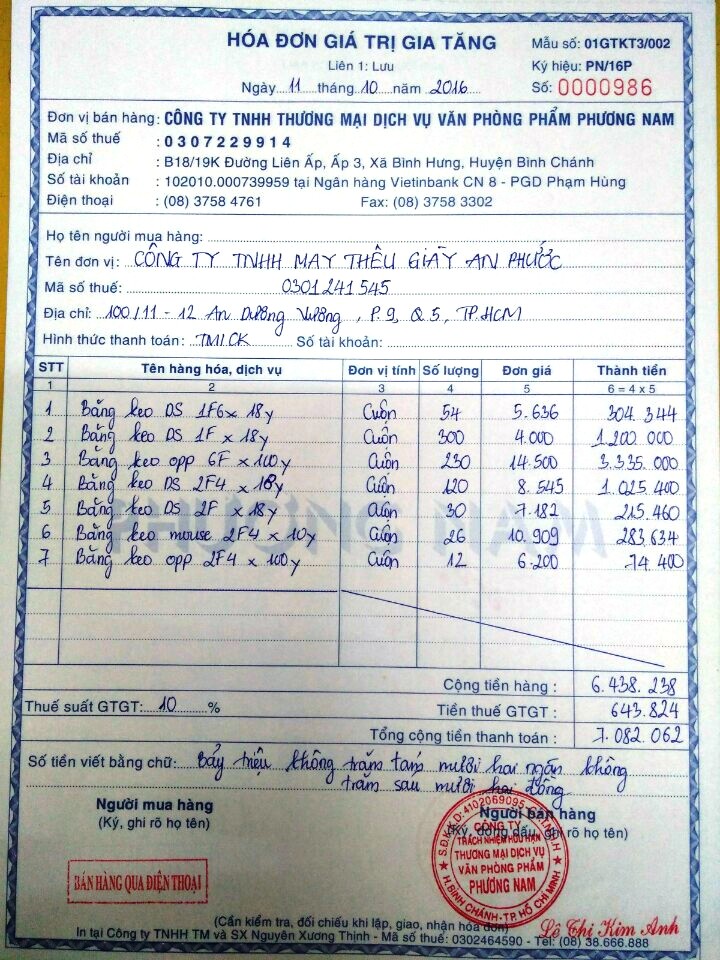 HÓA ĐƠN GIÁ TRỊ GIA TĂNG
Mẫu số: 01GTKT3/002
Liên 1: Lưu
Ký hiệu: PN/16P
Ngày 11 tháng 10 năm 2016
Số: 0000986
Đơn vị bán hàng: CÔNG TY TNHH THƯƠNG MẠI DỊCH VỤ VĂN PHÒNG PHẨM PHƯƠNG NAM
Mã số thuế : 0307229914
Địa chỉ : B18/19K Đường Liên Ấp, Ấp 3, Xã Bình Hưng, Huyện Bình Chánh
Số tài khoản : 102010.000739959 tại Ngân hàng Vietinbank CN 8 - PGD Phạm Hùng
Điện thoại : (08) 3758 4761 Fax: (08) 3758 3302
Họ tên người mua hàng:
Tên đơn vị: CÔNG TY TNHH MAY THÊU GIÀY AN PHƯỚC
Mã số thuế: 0301241545
Địa chỉ: 100/11 - 12 An Dương Vương, P.9, Q5, TP.HCM
Hình thức thanh toán: TM/CK Số tài khoản:
STT Tên hàng hóa, dịch vụ Đơn vị tính Số lượng Đơn giá Thành tiền
1 2 3 4 5 6 = 4 x 5
1 Băng keo DS 1F6 x 18y Cuồn 54 5.636 304.344
2 Băng keo DS 1F x 18y Cuồn 300 4.000 1.200 000
3 Băng keo opp 6F x 100y Cuồn 230 14.500 3.335.000
4 Băng keo DS 2F4 x 18y Cuồn 120 8.545 1.025.400
5 Băng keo DS 2F x 18y Cuồn 30 7.182 215.460
6 Băng keo mouse 2F4 x 10y Cuồn 26 10.909 283.634
7 Băng keo opp 2F4 x 100y Cuồn 12 6.200 74.400
Cộng tiền hàng : 6.438.238
Thuế suất GTGT: 10 % Tiền thuế GTGT : 643.824
Tổng cộng tiền thanh toán : 7.082.062
Số tiền viết bằng chữ: Bảy triệu không trăm tám mươi hai ngàn không
trăm sáu mươi hai đồng
Người mua hàng
Người bán hàng
(Ký, ghi rõ họ tên)
(Ký, đóng dấu, ghi rõ họ tên)
BÁN HÀNG QUA ĐIỆN THOẠI
S.Đ.K.K.D: 4102069095
CÔNG TY
TRÁCH NHIỆM HỮU HẠN
THƯƠNG MẠI DỊCH VỤ
VĂN PHÒNG PHẨM
PHƯƠNG NAM
H.BÌNH CHÁNH-TP.HỒ CHÍ MINH
Lê Thị Kim Anh
(Cần kiểm tra, đối chiếu khi lập, giao, nhận hóa đơn)
In tại Công ty TNHH TM và SX Nguyên Xương Thịnh - Mã số thuế: 0302464590 - Tel: (08) 38.666.888